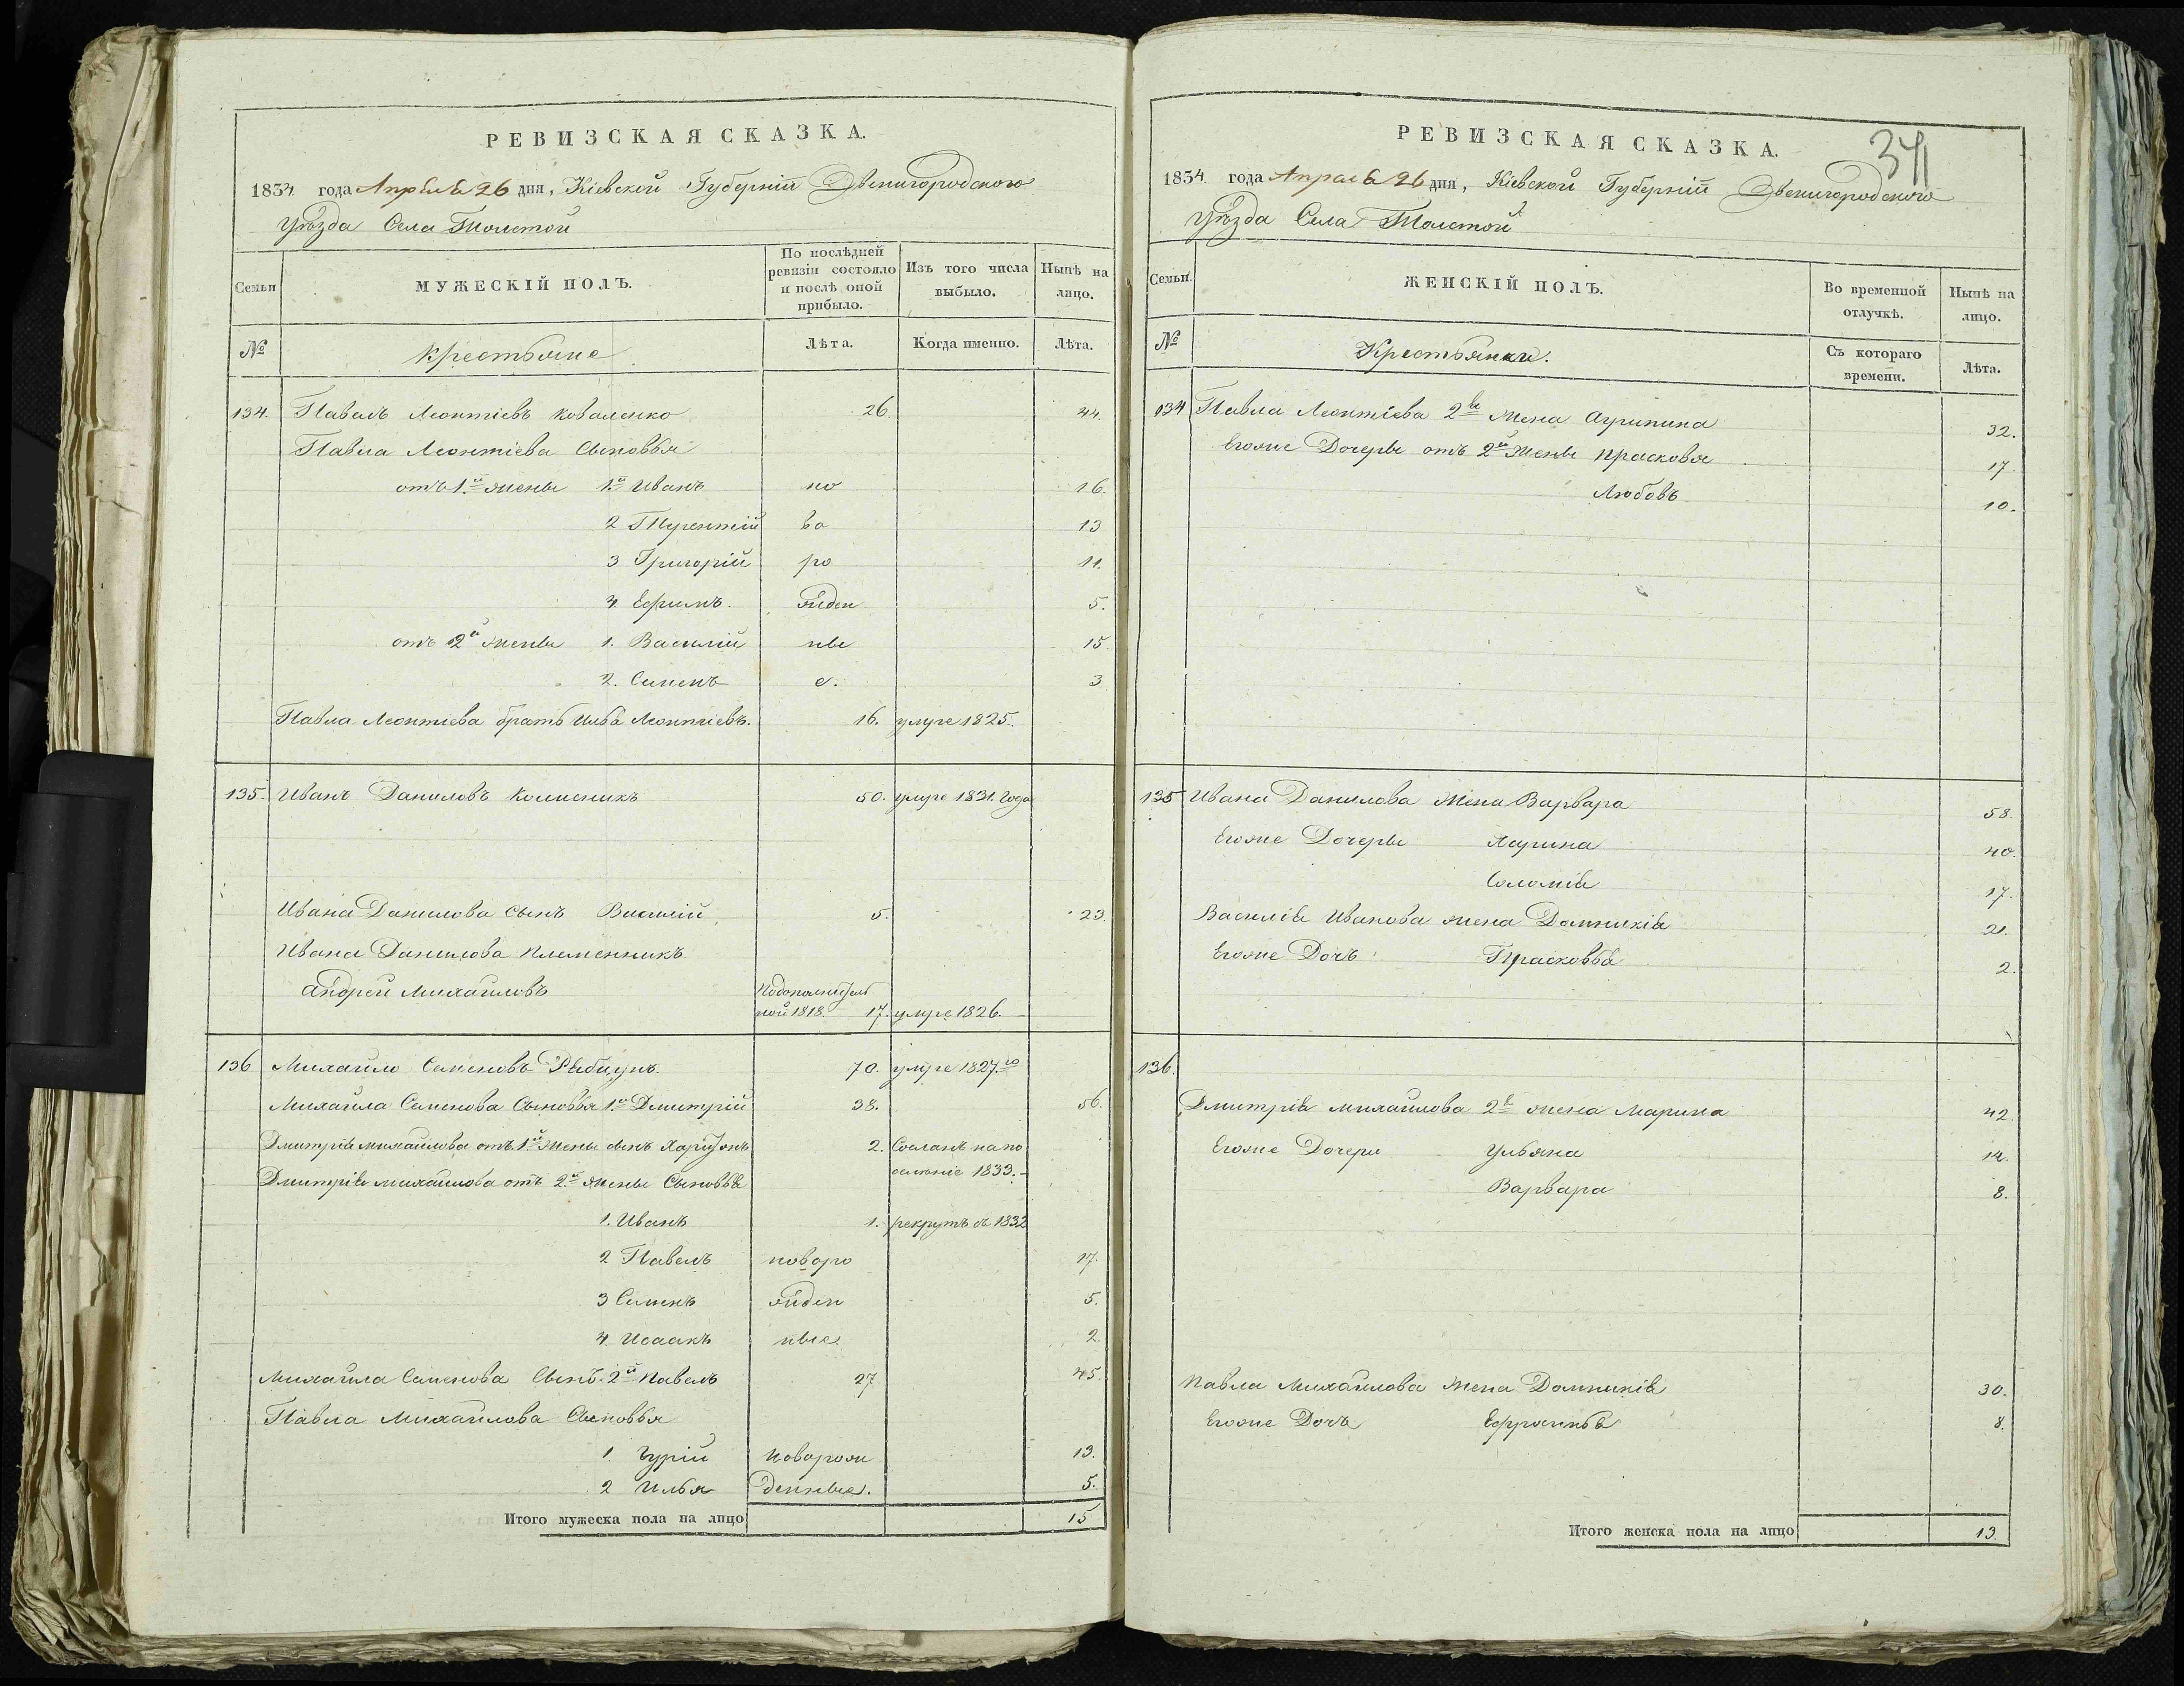 РЕВИЗСКАЯ СКАЗКА.
1834 года Апреля 26 дня, Кіевской Губерніи Звенигородского
уѣзда Села Толстой
Семьи
МУЖЕСКІЙ ПОЛЪ.
По послѣдней ревизіи состояло и послѣ оной прибыло.
Изъ того числа выбыло.
Нынѣ на лицо.
№
Крестьяне
Лѣта.
Когда именно.
Лѣта.
134. Павелъ Леонтіевъ Коваленко 26. 44.
Павла Леонтіева Сыновья
отъ 1.й жены 1.й Иванъ но 16.
2 во 13
3 Григорій ро 11.
4. Ефимъ. жден 5.
отъ 2й жены 1. Василій ные 15
2. Семенъ е. 3
Павла Леонтіева братъ Илья Леонтіевъ. 16. умре 1825.
135. Иванъ Даниловъ Колисникъ 50. умре 1831. года
Ивана Данилова сынъ Василій 5. 23.
Ивана Данилова племенникъ
Андрей Михайловъ Подополнитель
ной 1818. 17. умре 1826.
136 Михайло Семеновъ 70. умре 1827.го
Михайла Семенова Сыновья 1.й Дмитрій 38. 56.
Дмитрія Михайлова отъ 1й жены сынъ Харитонъ 2. Сосланъ на по
селеніе 1833.
Дмитрія Михайлова отъ 2.й жены Сыновья
1. Иванъ 1. рекрутъ съ 1832
2 Павелъ новоро 17.
3 Семенъ жден 5.
4. Исаакъ ные 2.
Михайла Семенова Сынъ 2й Павелъ 27 45.
Павла Михайлова Сыновья
1. Гурій Новорож 13.
2 Илья денные. 5.
Итого мужеска пола на лицо 15
34
РЕВИЗСКАЯ СКАЗКА.
1834. года Апреля 26 дня, Кіевской Губерніи Звенигородского
уѣзда Села Толстой
Семьи.
ЖЕНСКІЙ ПОЛЪ.
Во временной отлучкѣ.
Нынѣ на лицо.
№
Крестьянки.
Съ котораго времени.
Лѣта.
134 Павла Леонтіева 2я жена Агрипина 32.
Егоже Дочеры отъ 2й жены Прасковя 17
Любовъ 10.
135 Ивана Данилова жена Варвара 58.
Егоже Дочеры 40.
Соломія 17.
Василія Иванова жена Домникія 21.
Егоже Дочъ Прасковья 2.
136.
Дмитрія Михайлова 2я жена Марина 42
Егоже Дочери Ульяна 14.
Варвара 8.
Павла Михайлова жена Домникія 30.
Егоже Дочъ 8.
Итого женска пола на лицо 13.